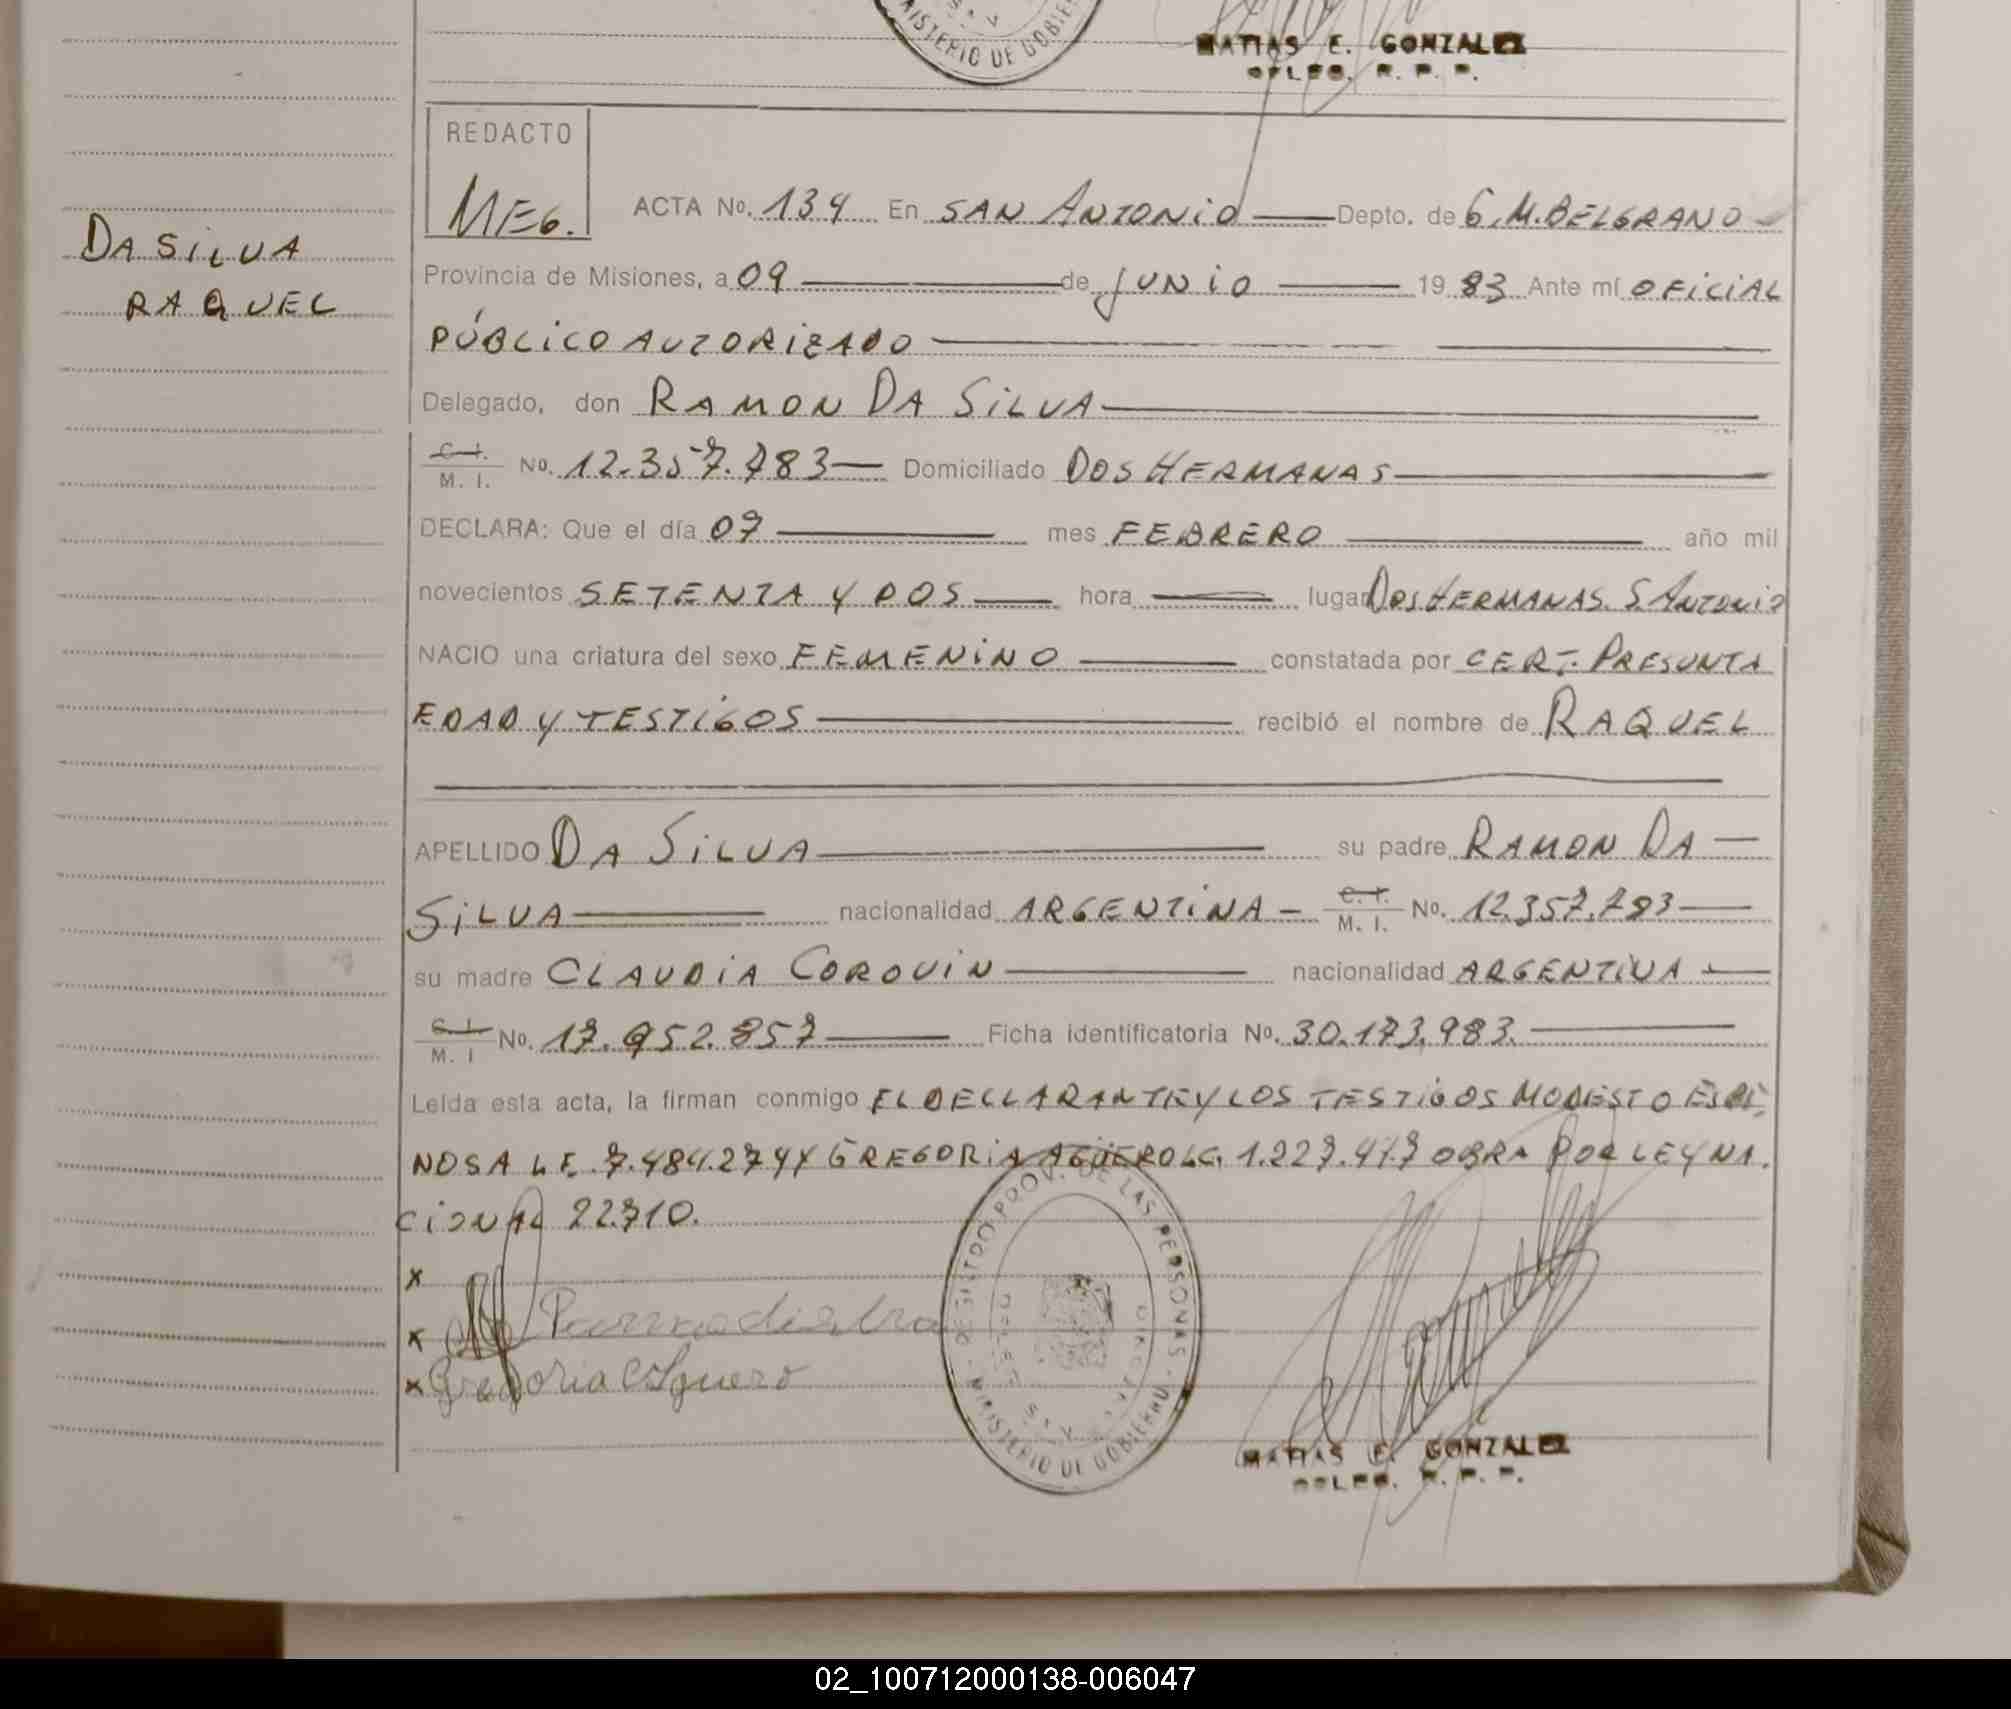 MINISTERIO DE GOBIE
MATIAS E. GONZALEZ
REDACTO
MEG.
DA SILVA
RAQUEL
ACTA No. 134 En SAN ANTONIO Depto. de G.M.BELGRANO
Provincia de Misiones, a 09 de JUNIO 19 83 Ante mí OFICIAL
PÚBLICO AUTORIZADO
Delegado, don RAMON DA SILVA
C. I. / M. I. No. 12.357.783 Domiciliado DOS HERMANAS
DECLARA: Que el día 07 mes FEBRERO año mil
novecientos SETENTA Y DOS hora lugar DOS HERMANAS. S. ANTONIO
NACIO una criatura del sexo FEMENINO constatada por CERT. PRESUNTA
EDAD Y TESTIGOS recibió el nombre de RAQUEL
APELLIDO DA SILVA su padre RAMON DA
SILVA nacionalidad ARGENTINA C. I. / M. I. No. 12.357.783
su madre CLAUDIA COROVIN nacionalidad ARGENTINA
C. I. / M. I No. 17.952.857 Ficha identificatoria No. 30.173.983.
Leída esta acta, la firman conmigo EL DECLARANTE Y LOS TESTIGOS MODESTO ESPI
NOSA L.E. 7.484.274 Y GREGORIA AGÜERO LC. 1.227.417 OBRA POR LEY NA.
CIONAL 22.710.
x
x
x Gregoria Aguero
REGISTRO PROV. DE LAS PERSONAS
MINISTERIO DE GOBIERNO
MATIAS E. GONZALEZ
02_100712000138-006047